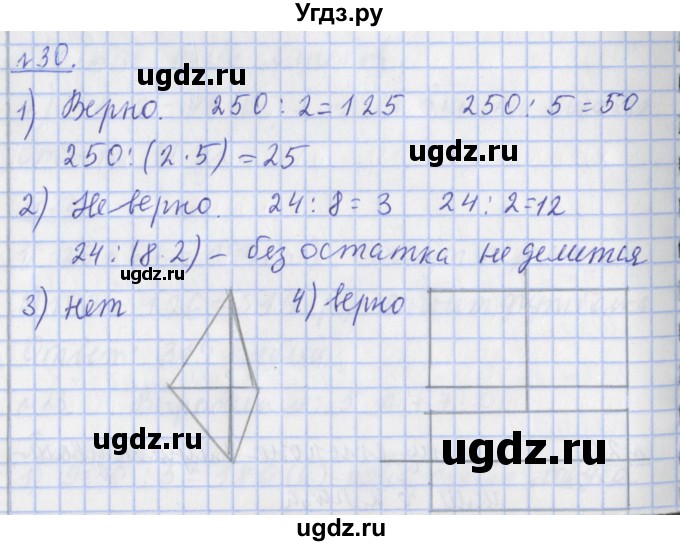 Угдз.ру
№30.
1) Верно. 250 : 2 = 125 250 : 5 = 50
250 : (2 · 5) = 25
2) Неверно. 24 : 8 = 3 24 : 2 = 12
24 : (8 · 2) – без остатка не делится
3) нет 4) верно
ugdz.ru
ugdz.ru
ugdz.ru
ugdz.ru
ugdz.ru
ugdz.ru
ugdz.ru
ugdz.ru